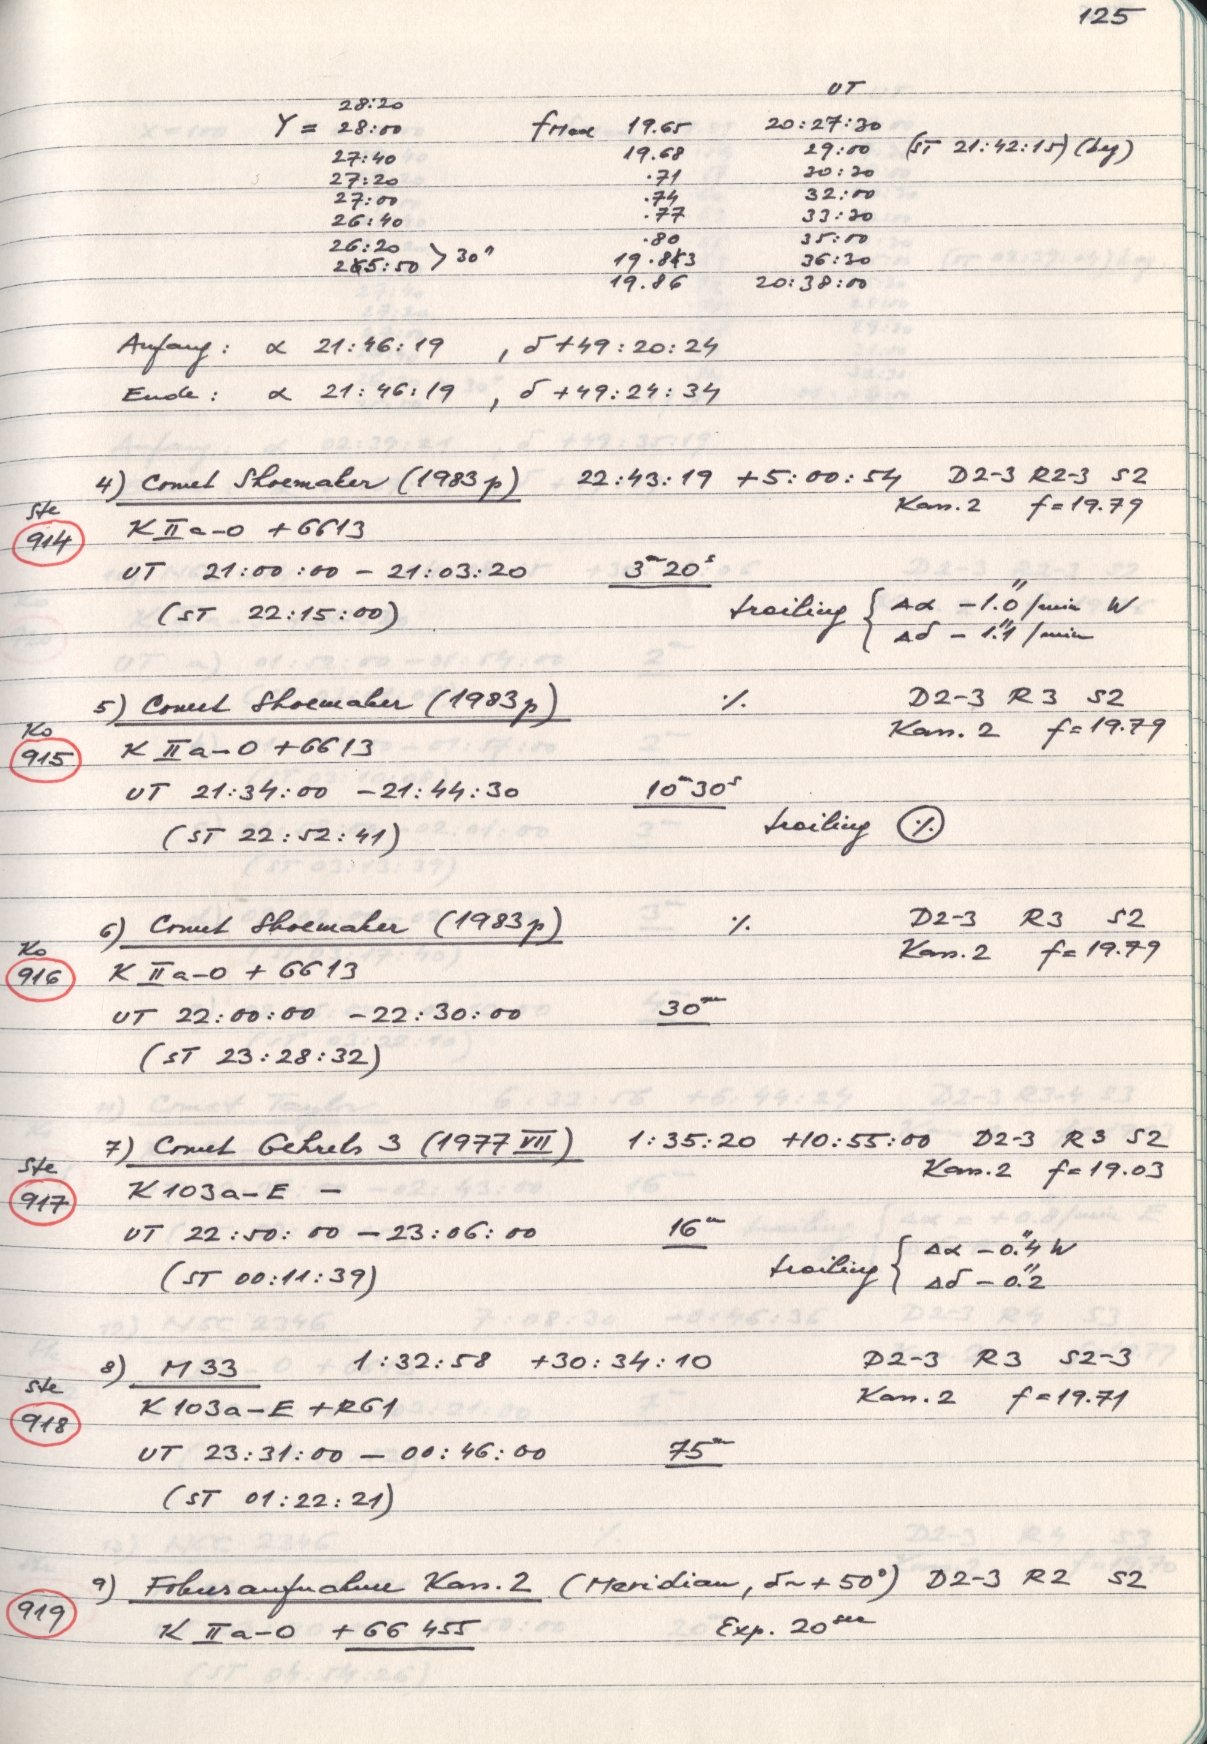 125
UT
28:20
Y = 28:00 fMax 19.65 20:27:30
27:40 19.68 29:00 (ST 21:42:15) (beg)
27:20 .71 30:30
27:00 .74 32:00
26:40 .77 33:30
26:20 .80 35:00
25:50 > 30" 19.83 36:30
19.86 20:38:00
Anfang: α 21:46:19 , δ +49:20:24
Ende: α 21:46:19 , δ +49:24:34
4) Comet Shoemaker (1983p) 22:43:19 +5:00:54 D2-3 R2-3 S2
Ste Kass.2 f=19.79
914 K II a-O + GG13
UT 21:00:00 - 21:03:20 3m20s
(ST 22:15:00) trailing { Δα -1."0/min W
Δδ - 1."1/min
5) Comet Shoemaker (1983p) ·/. D2-3 R3 S2
Ko Kass.2 f=19.79
915 K II a-O + GG13
UT 21:34:00 - 21:44:30 10m30s
(ST 22:52:41) trailing ·/.
6) Comet Shoemaker (1983p) ·/. D2-3 R3 S2
Ko Kass.2 f=19.79
916 K II a-O + GG13
UT 22:00:00 - 22:30:00 30m
(ST 23:28:32)
7) Comet Gehrels 3 (1977 VII) 1:35:20 +10:55:00 D2-3 R3 S2
Ste Kass.2 f=19.03
917 K 103a-E -
UT 22:50:00 - 23:06:00 16m
(ST 00:11:39) trailing { Δα -0."4 W
Δδ - 0."2
8) M 33 1:32:58 +30:34:10 D2-3 R3 S2-3
Ste Kass.2 f=19.71
918 K 103a-E + RG1
UT 23:31:00 - 00:46:00 75m
(ST 01:22:21)
9) Fokusaufnahme Kass.2 (Meridian, δ~+50°) D2-3 R2 S2
919 K II a-O + GG 455 Exp. 20sec